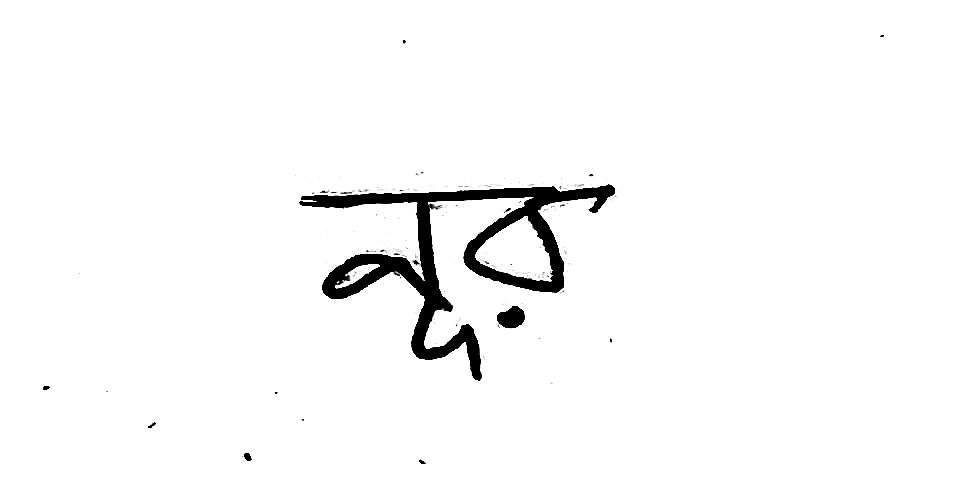 নূর